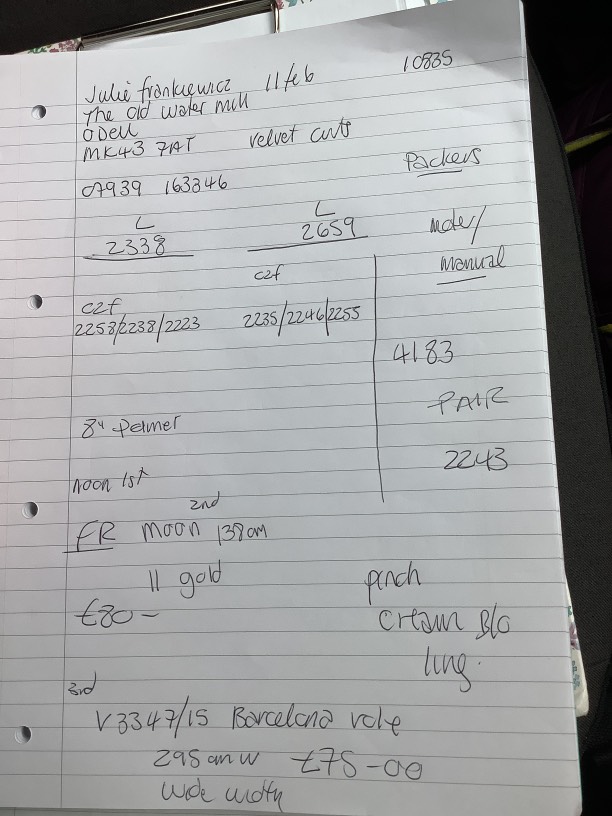 Julie frankiewicz 11 feb 10835
The old water mill
ODell
MK43 7AT velvet curts
Packers
07939 163346
L L
2338 2659
motor/
manual
c2f c2f
2253/2238/2223 2235/2246/2255
4183
PAIR
2243
8" Pelmet
noon 1st
2nd
FR moon 138cm
11 gold pinch
£80— cream Blo
ling.
3rd
V3347/15 Barcelona
295 cm W £75-00
wide width